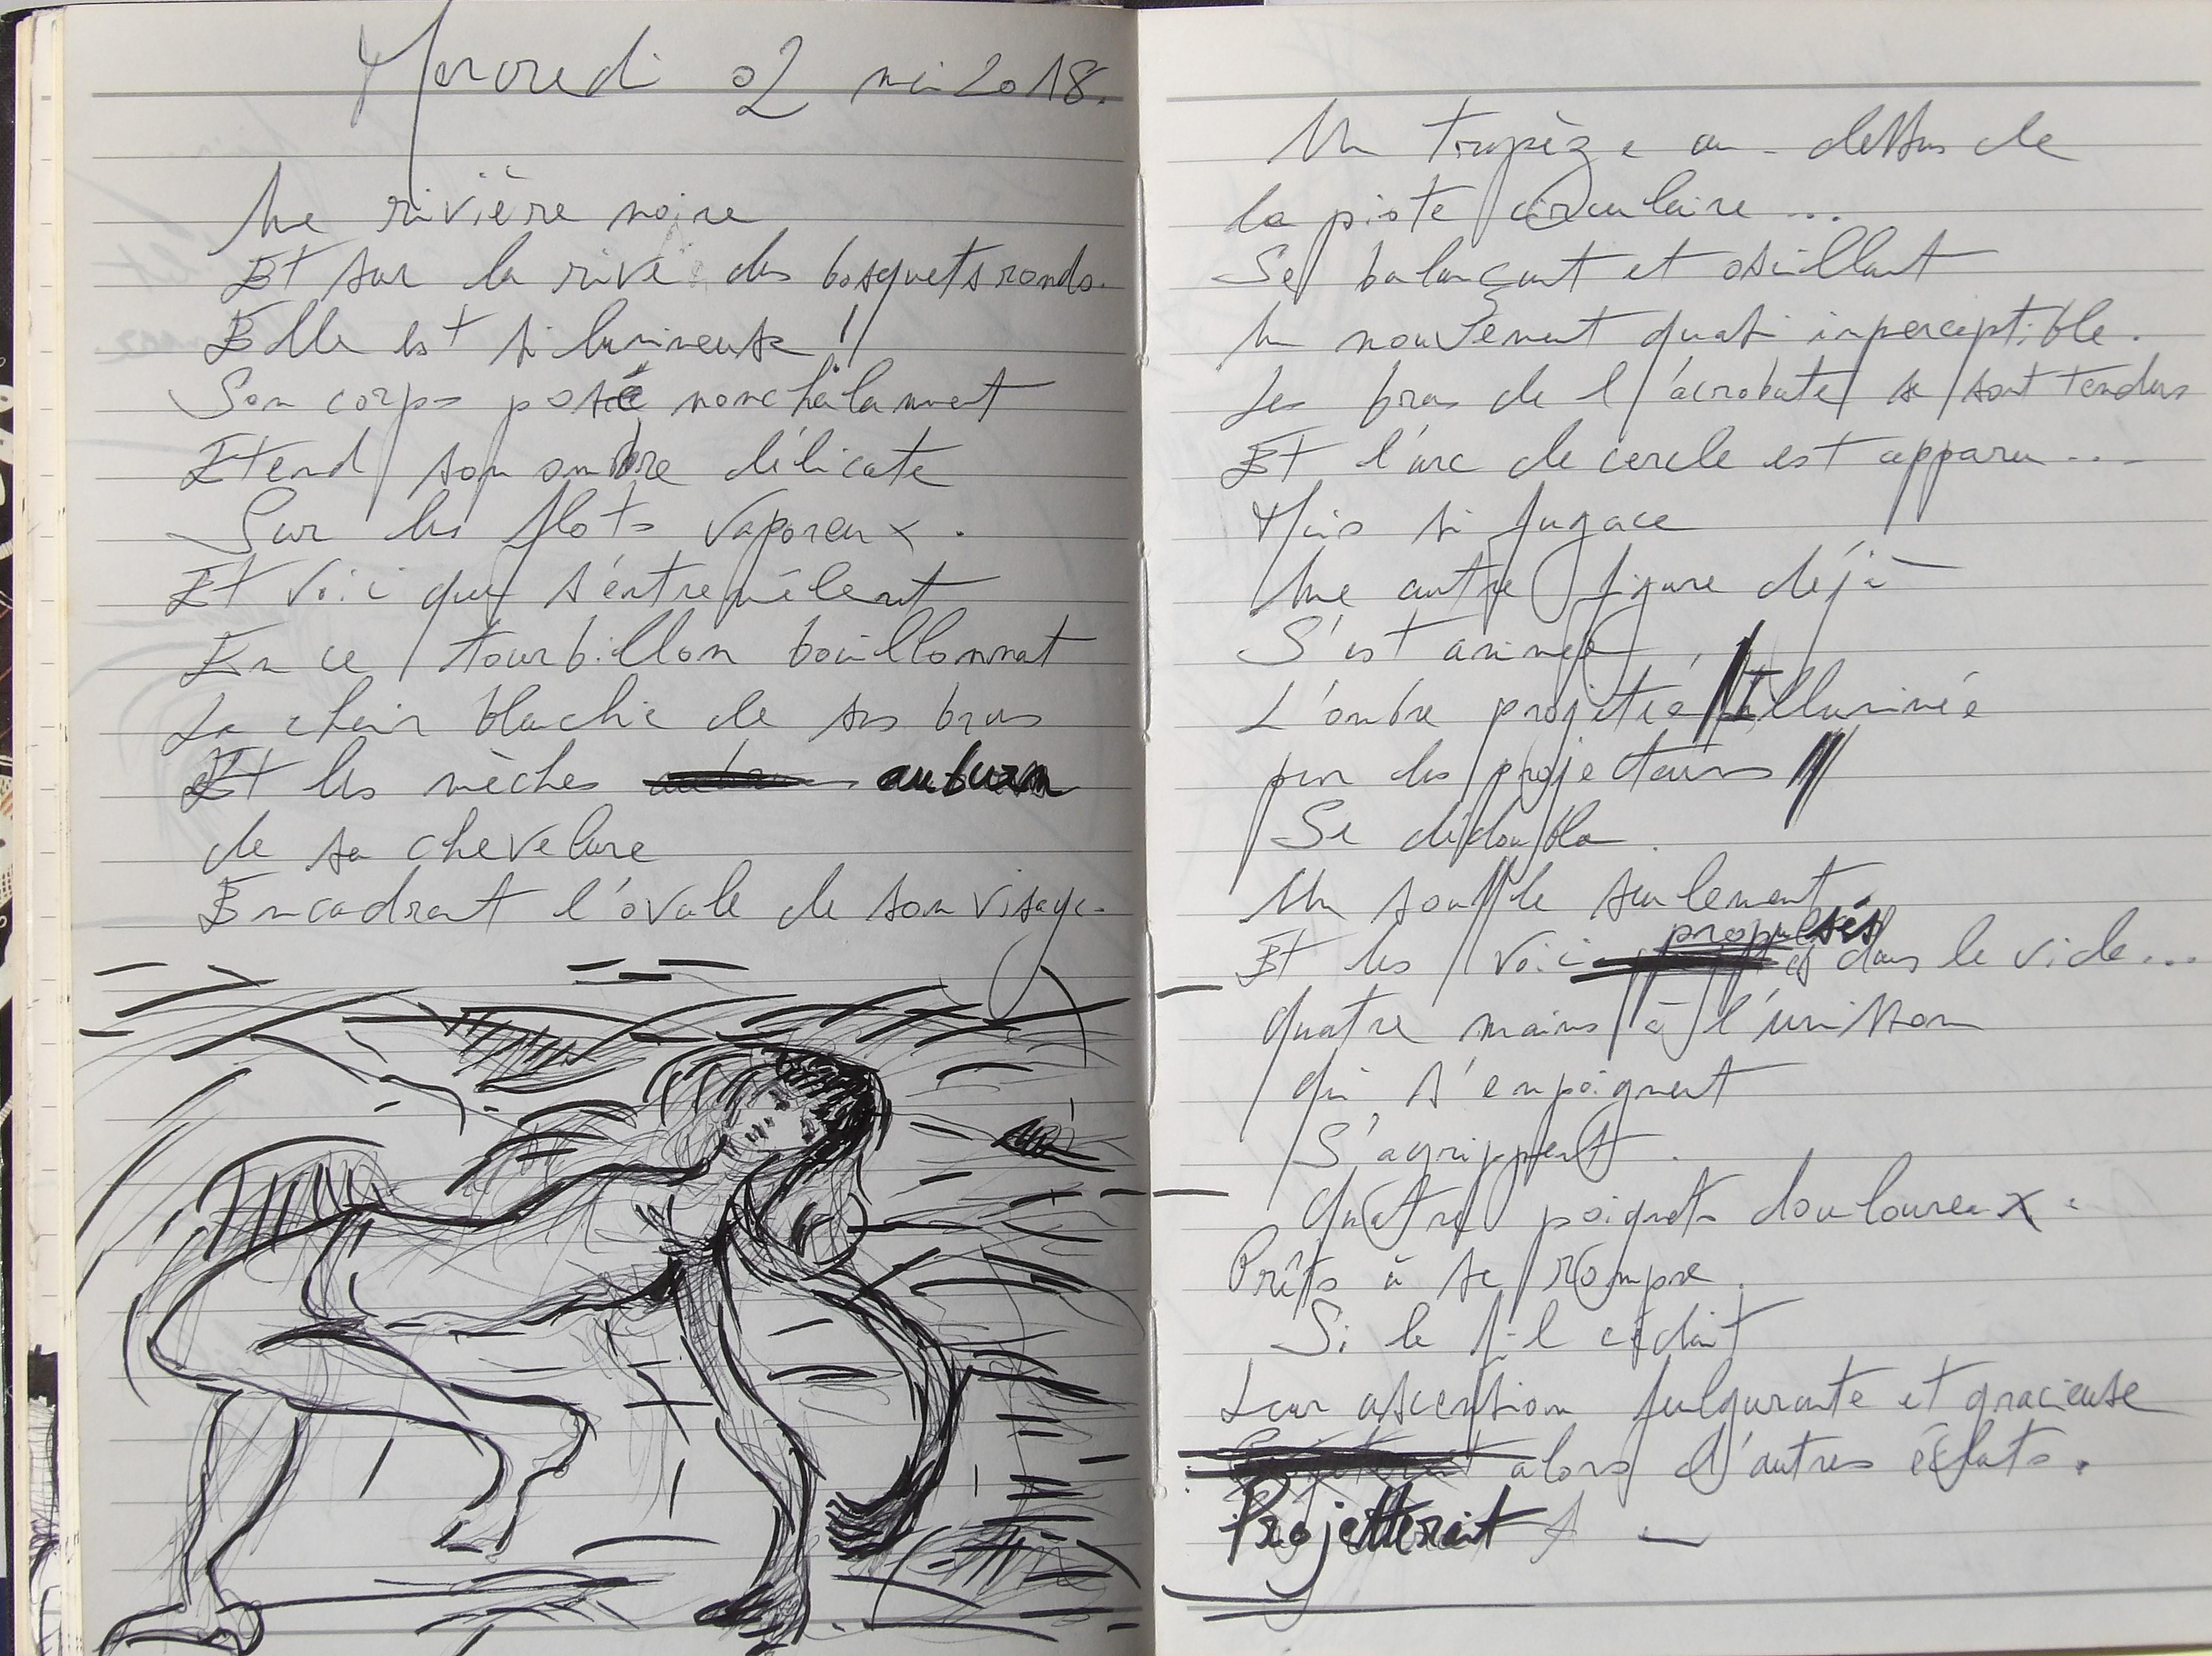 Mercredi 02 mai 2018.
Une rivière noire
Et sur la rive des bosquets ronds.
Elle est si lumineuse !
Son corps posé nonchalamment
Etend son ombre délicate
Sur les flots vaporeux.
Et voici que s'entremêlent
En ce tourbillon bouillonnat
La chair blanche de ses bras
Et les mèches auburn
de sa chevelure
Encadrant l'ovale de son visage.
Un trapèze au-dessus de
la piste circulaire...
Se balançant et oscillant
Un mouvement quasi imperceptible.
Les bras de l'acrobate se sont tendus
Et l'arc de cercle est apparu...
Mais si fugace
Une autre figure déjà
S'est animée,
L'ombre projetée Illuminée
par les projecteurs
Se dédoubla.
Un souffle seulement
Et les voici propulsés dans le vide...
Quatre mains à l'unisson
Qui s'empoignent
S'agrippent.
Quatre poignets douloureux.
Prêts à se rompre.
Si le fil cédait
Leur ascension fulgurante et gracieuse
alors d'autres éclats.
Projetterait